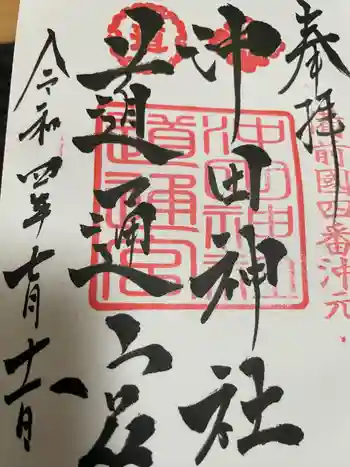 奉拝
前國四番沖元
沖田神社
道通宮
沖田神社
道通宮
令和四年七月十一日